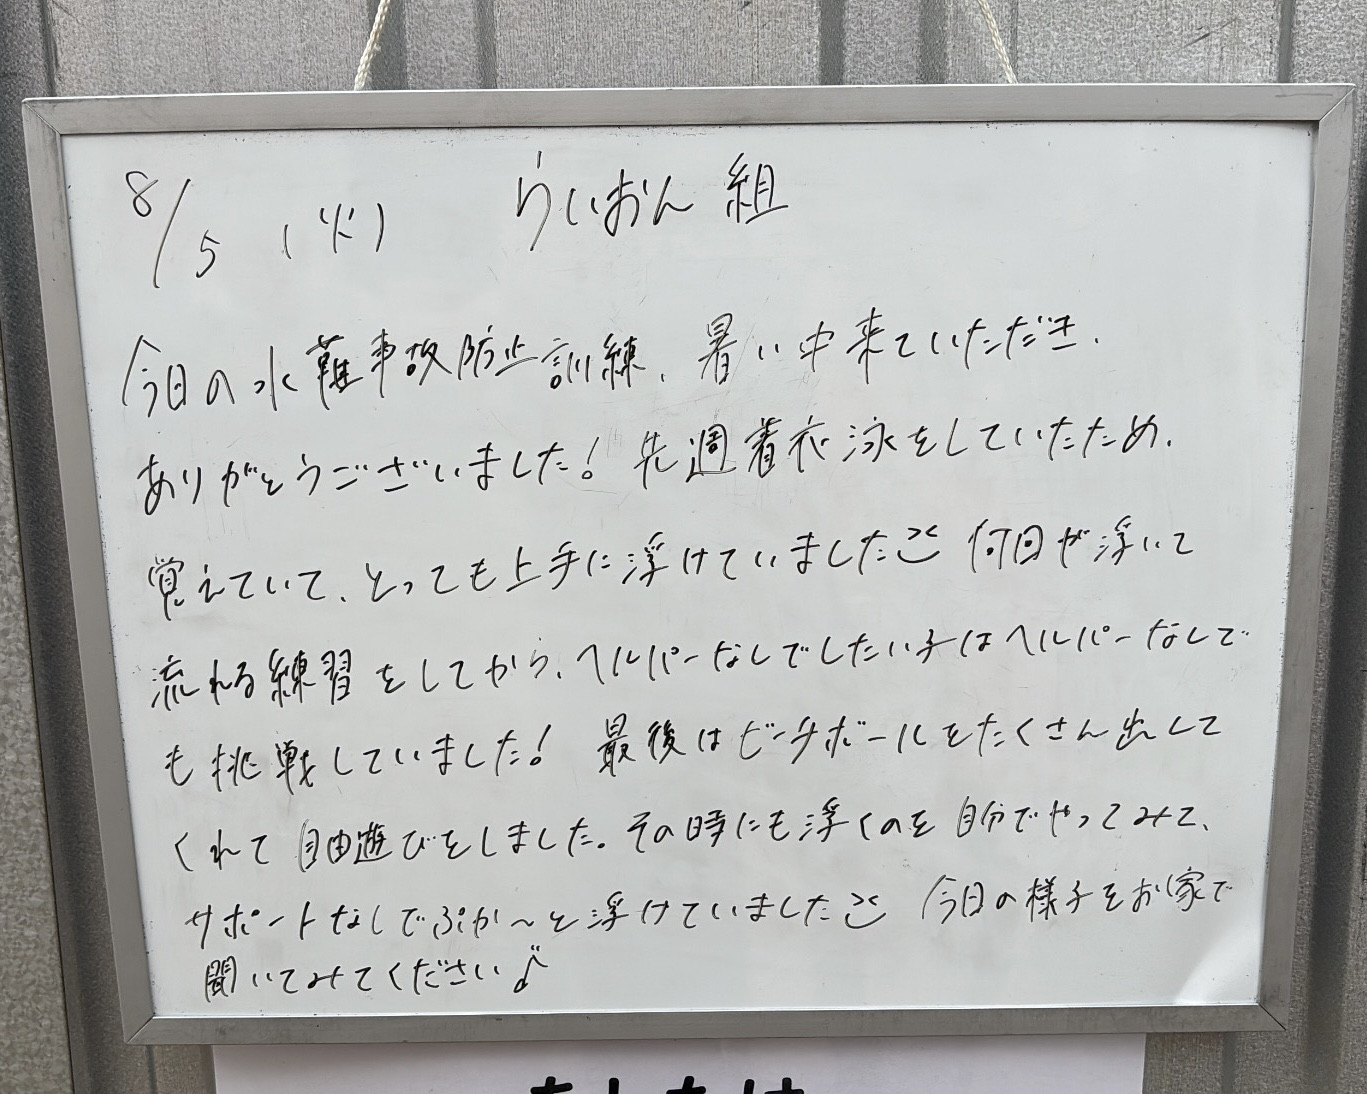 8/5 (火) らいおん組
今日の水難事故防止訓練、暑い中来ていただき、
ありがとうございました! 先週着衣泳をしていたため、
覚えていて、とっても上手に浮けていました 何回か浮いて
流れる練習をしてから、ヘルパーなしでしたい子はヘルパーなしで
も挑戦していました! 最後はビーチボールをたくさん出して
くれて自由遊びをしました。その時にも浮くのを自分でやってみて、
サポートなしでぷか〜と浮けていました 今日の様子をお家で
聞いてみてください♪